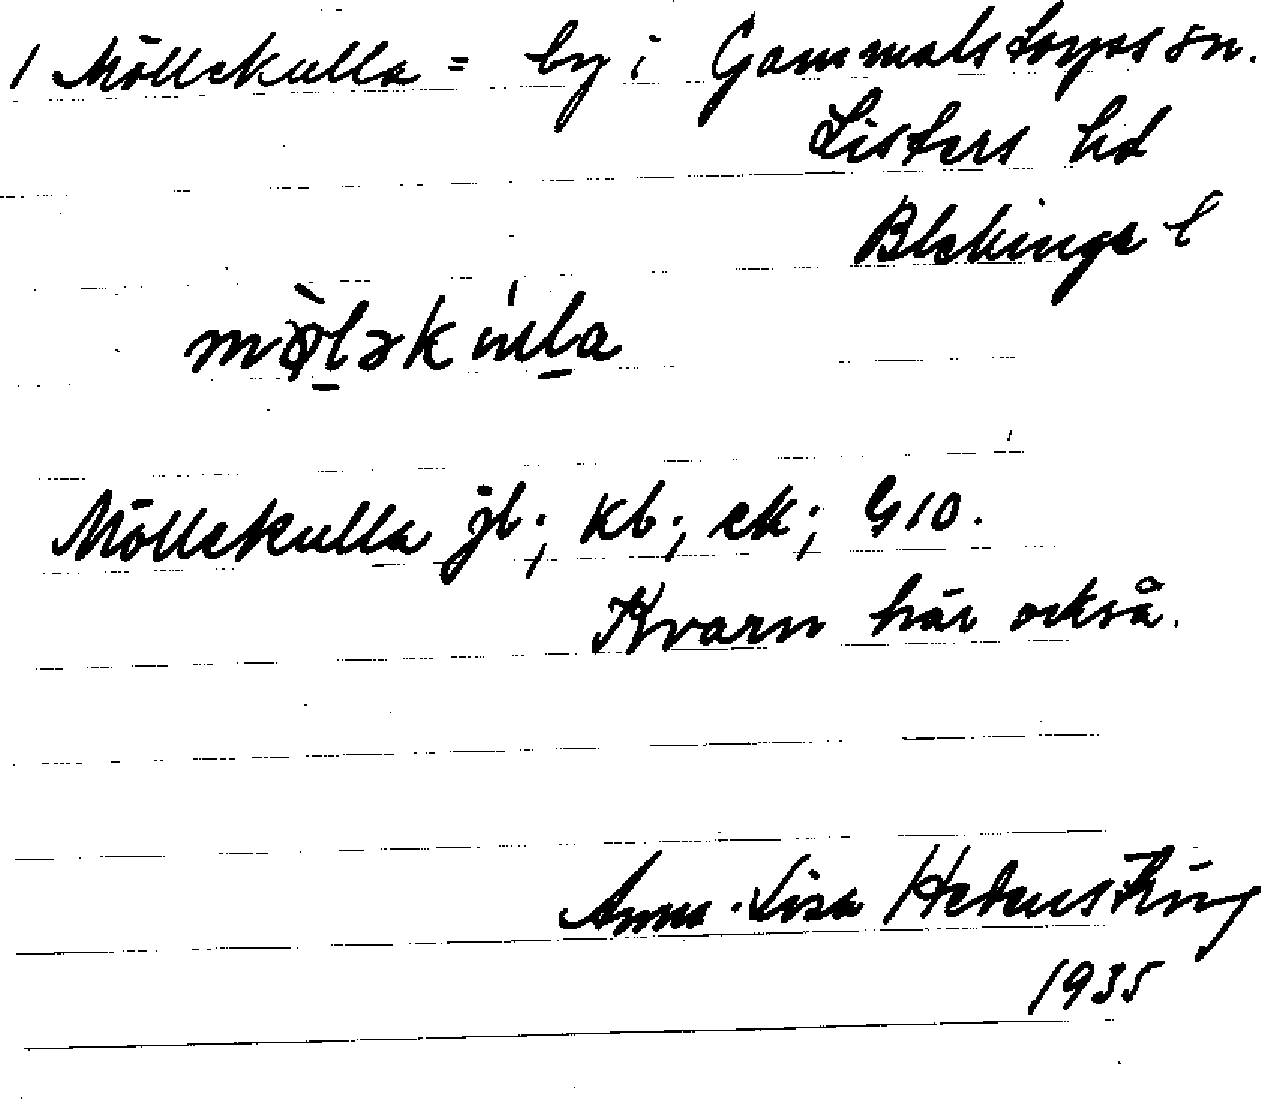 1 Möllekulla = by i Gammalstorps sn.
Listers hd
Blekinge l
mø̀l̲əkúl̲a
Möllekulla jb; kb; ek; G10.
Kvarn här också.
Anna-Lisa
1935